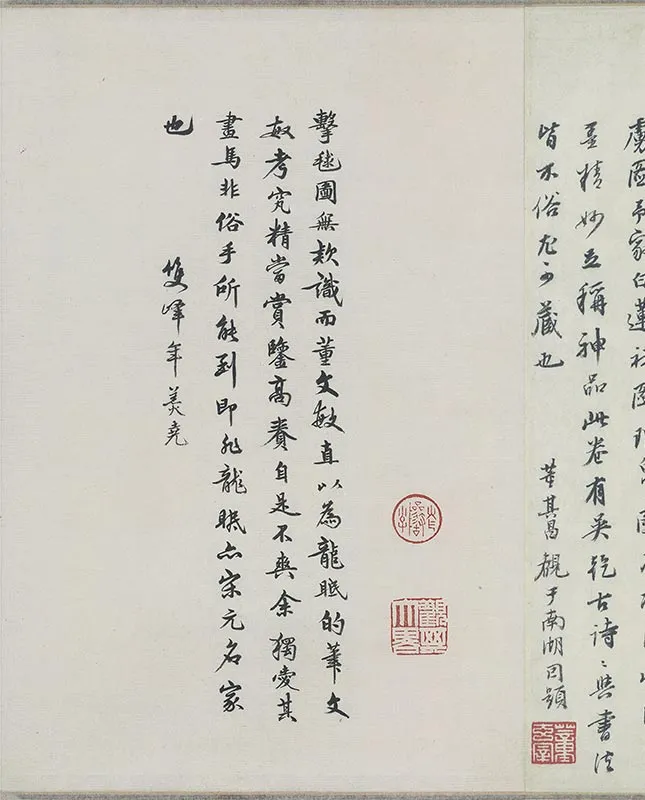 家白蓮社圖
墨精妙並稱神品此卷有吳古詩〻與書法
皆不俗尤可藏也 董其昌觀于南湖因題
擊毬圖無款識而董文敏直以為龍眠的筆文
敏考究精當賞鑒高自是不爽余獨愛其
畫馬非俗手所能到即非龍眠亦宋元名家
也
雙峰年羹堯